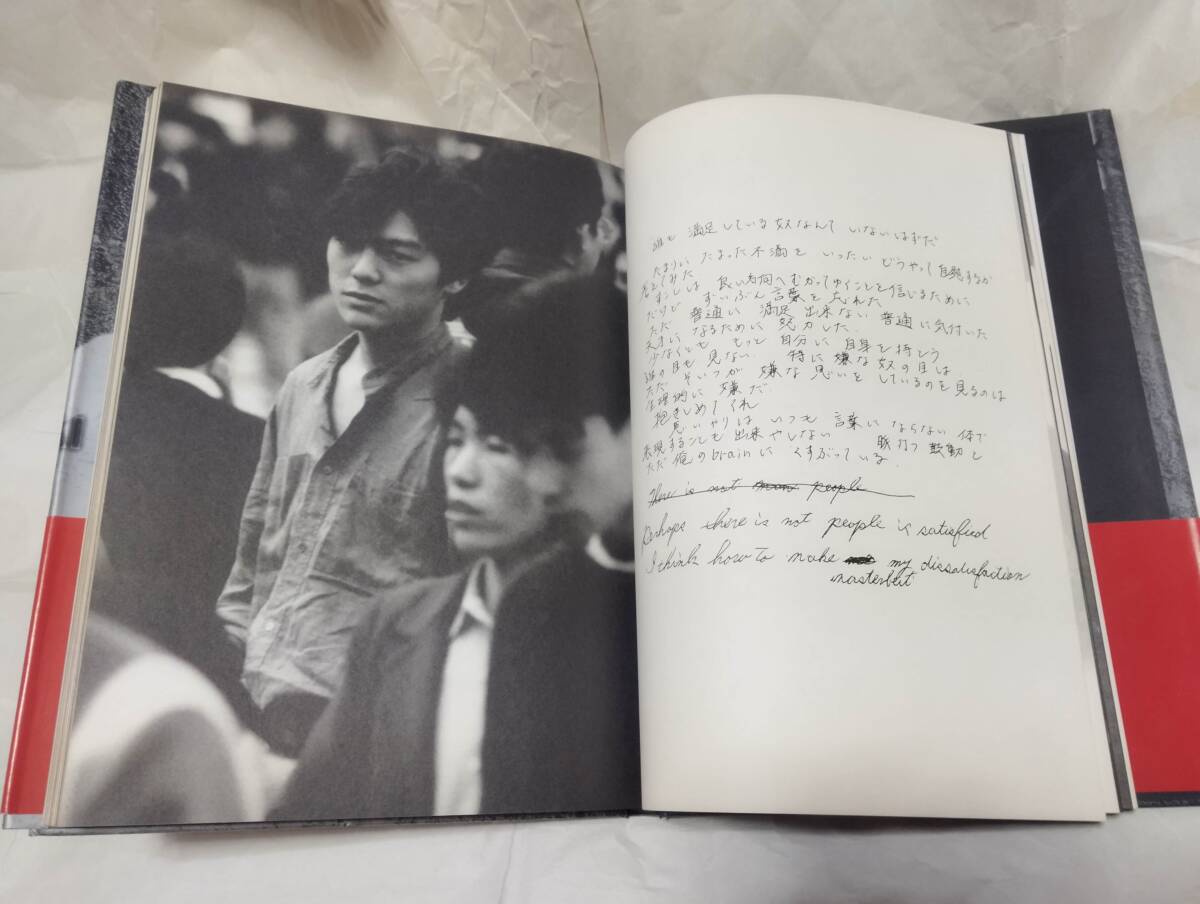 誰も 満足している奴なんて いないはずだ
たまりにたまった不満を いったい どうやって自慰するか
考えてみた
すこしは 良い方向へむかってゆくことを信じるために
だけど ずいぶん 言葉を 忘れた
ただ 普通に 満足 出来ない 普通に気付いた
天才に なるために 努力した.
少なくとも もっと 自分に 自身を持とう
誰の目も 見ない. 特に 嫌な 奴の目は
ただ そいつが 嫌な 思いを しているのを 見るのは
生理的に 嫌だ
抱きしめてくれ
思いやりは いつも 言葉に ならない 体で
表現することも 出来やしない 脈打つ 鼓動と
ただ 俺のbrainに くすぶっている.
There is not people
Perhaps there is not people is satisfied
I think how to make my dissatisfaction
masterbeit